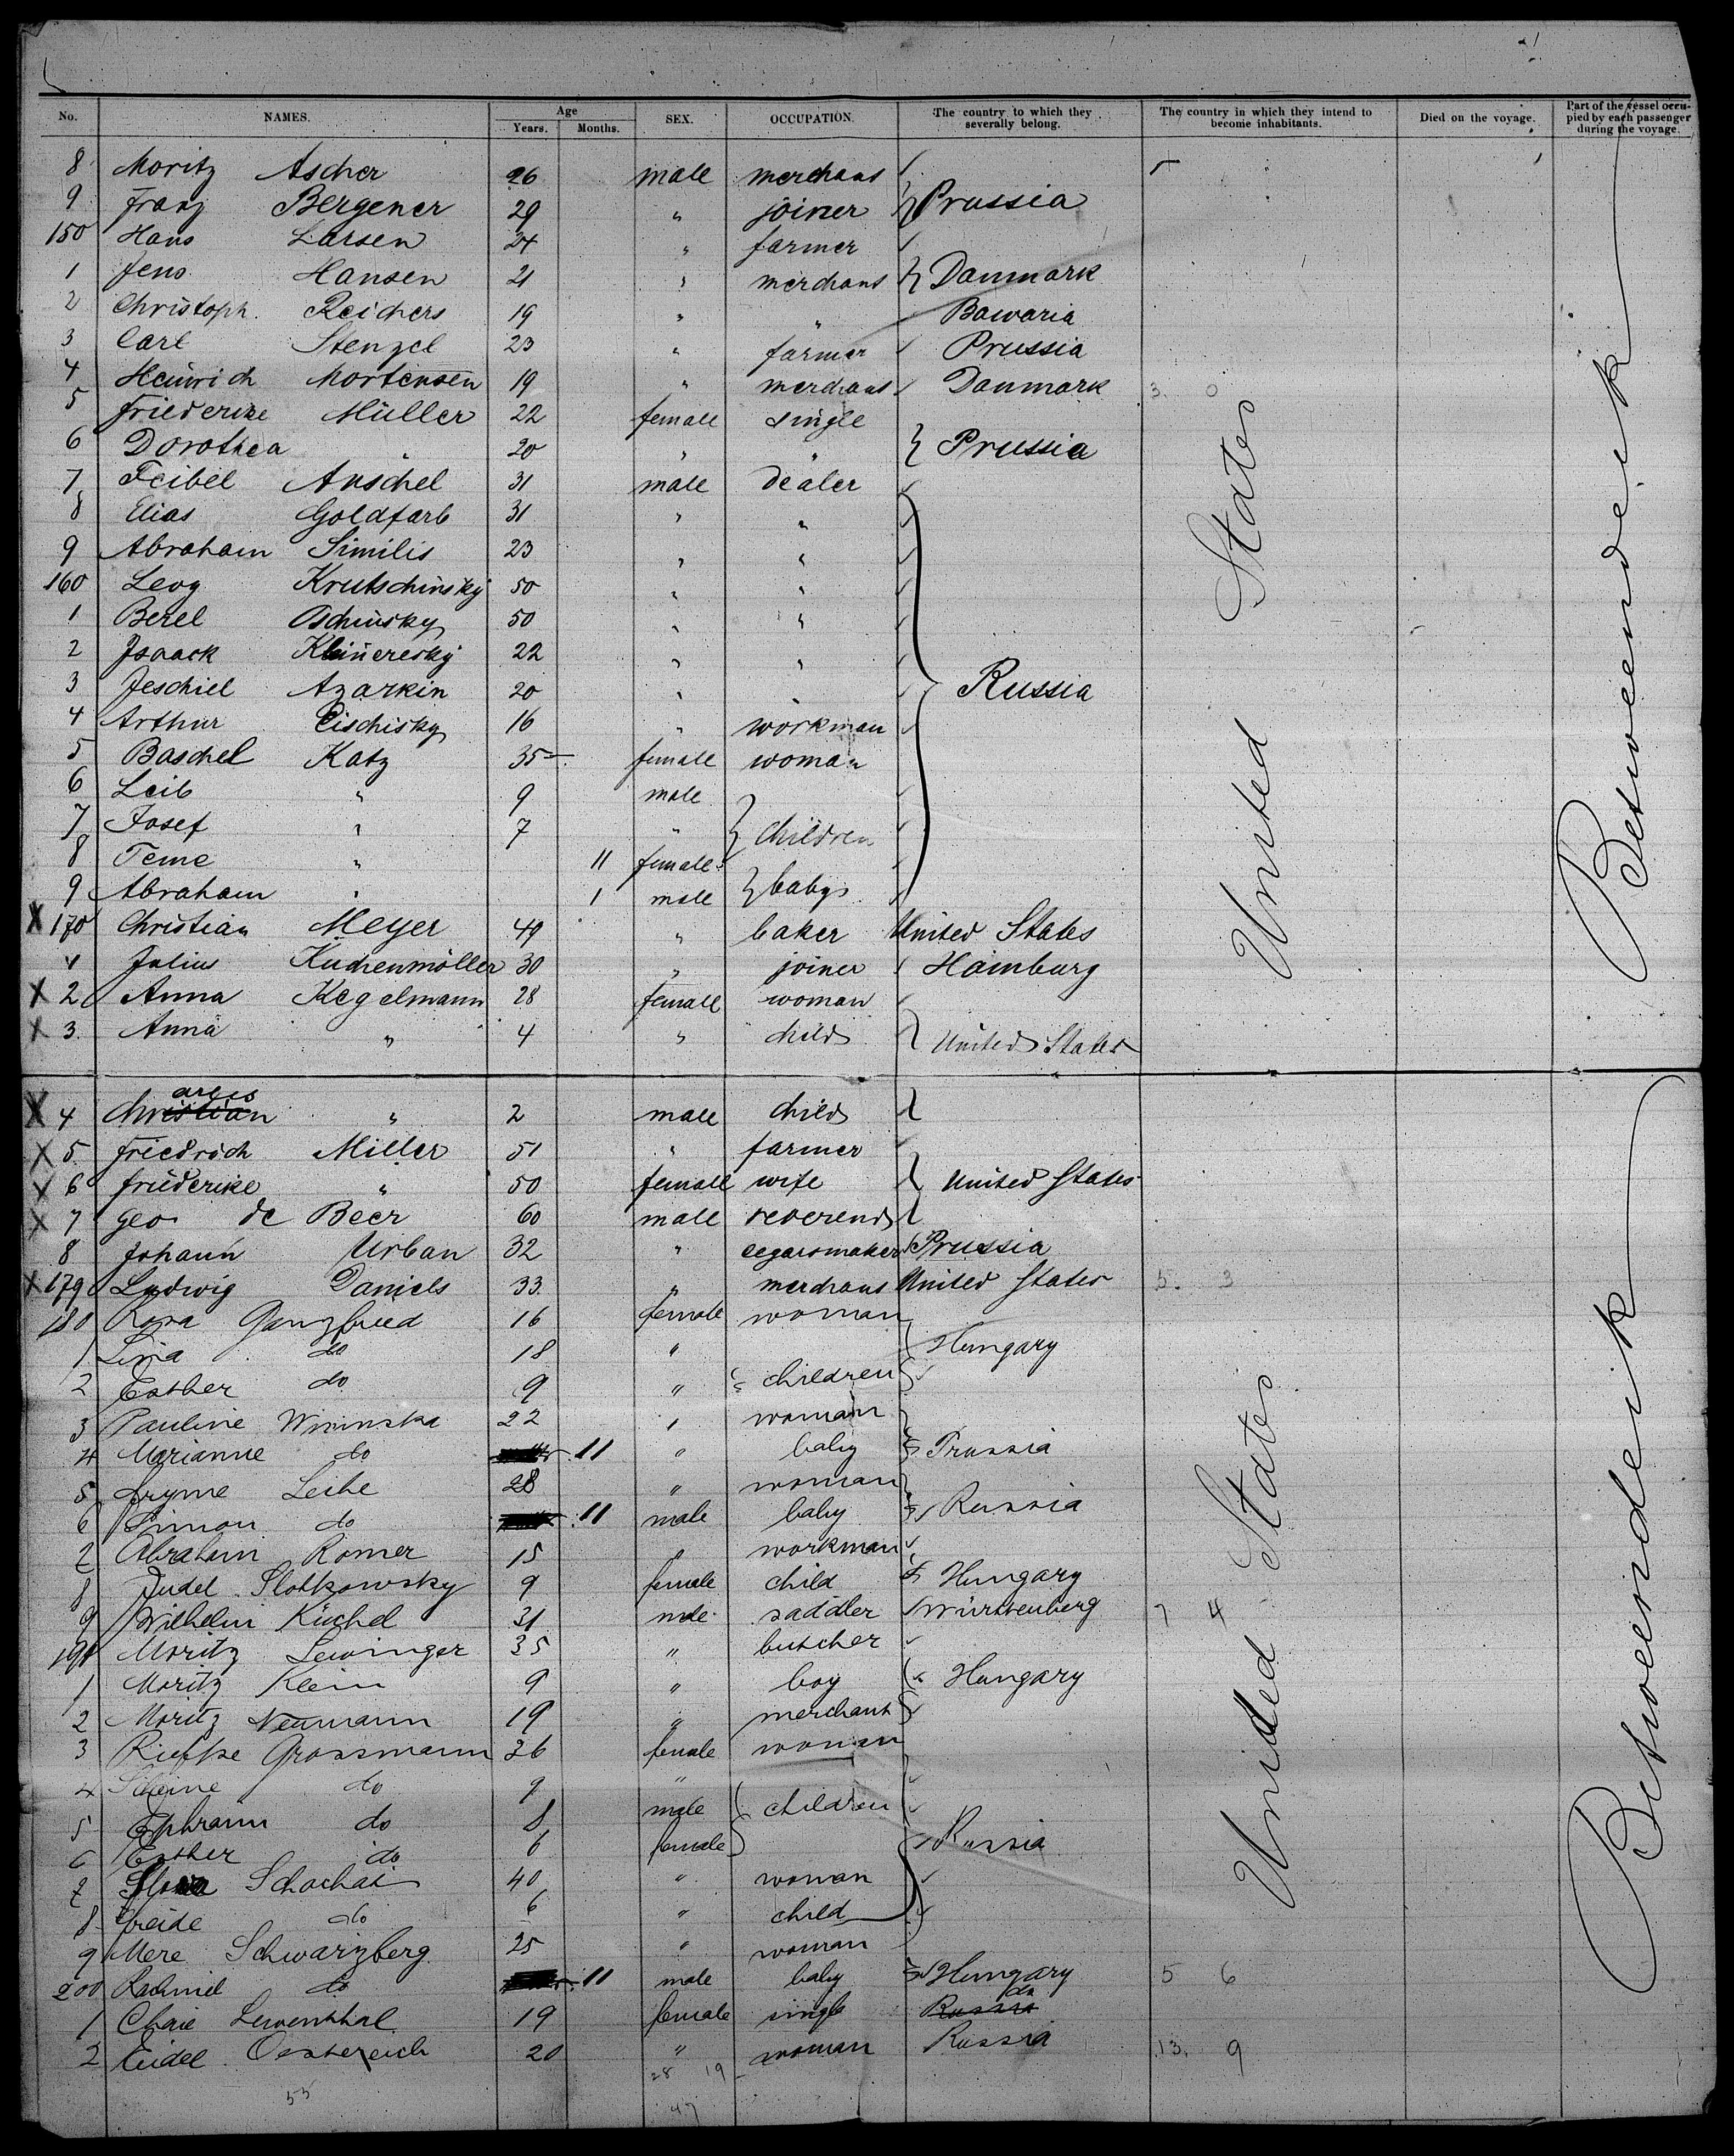 No. NAMES. Age Years. Months. SEX. OCCUPATION. The country to which they severally belong. The country in which they intend to become inhabitants. Died on the voyage. Part of the vessel occupied by each passenger during the voyage.
8 Moritz Ascher 26 male merchant
9 Franz Bergener 29 " joiner } Prussia
150 Hans Larsen 24 " farmer
1 Jens Hansen 21 " merchant } Danmark
2 Christoph. Reichers 19 " " Bawaria
3 Carl Stenzel 23 " farmer Prussia
4 Heinrich Mortensen 19 " merchant Danmark 3. 0
5 Friederike Müller 22 female single
6 Dorothea " 20 " " } Prussia
7 Feibel Anschel 31 male dealer
8 Elias Goldfarb 31 " "
9 Abraham Similis 23 " "
160 Levy Krutschinsky 50 " "
1 Berel Oschinsky 50 " "
2 Isaack 22 " "
3 Jeschiel Azarkin 20 " " Russia
4 Arthur Eischisky 16 " workman
5 Baschel Katz 35 female woman
6 Leib " 9 male
7 Josef " 7 " } children
8 Teme " 11 female
9 Abraham " 1 male } babys
X 170 Christian Meyer 49 " baker United States
1 Julius Kuchenmöller 30 " joiner Hamburg
X 2 Anna Kegelmann 28 female woman
X 3. Anna " 4 " child United States
X 4 Christian arles " 2 male child
X 5. Friedrich Miller 51 " farmer
X 6 Friederike " 50 female wife United States
X 7 Geo de Beer 60 male reverend
8 Johann Urban 32 " cegarsmaker Prussia
X 179 Ludwig Daniels 33. " merchant United States 5. 3
180 Rosa Ganzfried 16 female woman
1 Lina do 18 " Hungary
2 Esther do 9 " children
3 Pauline Wininska 22 " woman
4 Marianne do 11 " baby Prussia
5 Leibe 28 " woman
6 Simon do 11 male baby Russia
7 Abraham Romer 15 " workman
8 Judel Slotkowsky 9 female child Hungary
9 Wilhelm Küchel 31 male saddler Württenberg 7 4
190 Moritz Lewinger 35 " butcher
1 Moritz Klein 9 " boy Hungary
2 Moritz Neumann 19 " merchant
3 Riefke Grossmann 26 female woman
4 do 9 "
5 Ephraim do 8 male children
6 Esther do 6 female Russia
7 Schochat 40 " woman
8 Freide do 6 " child
9 Mere Schwarzberg 25 " woman
200 Rachmiel do 11 male baby Hungary 5 6
1 Chaie Lewenthal 19 female single Russia do
2 Eidel Oestereich 20 " woman Russia 13. 9
28 19
55
47
United States
United States
Betweendeck
Betweendeck